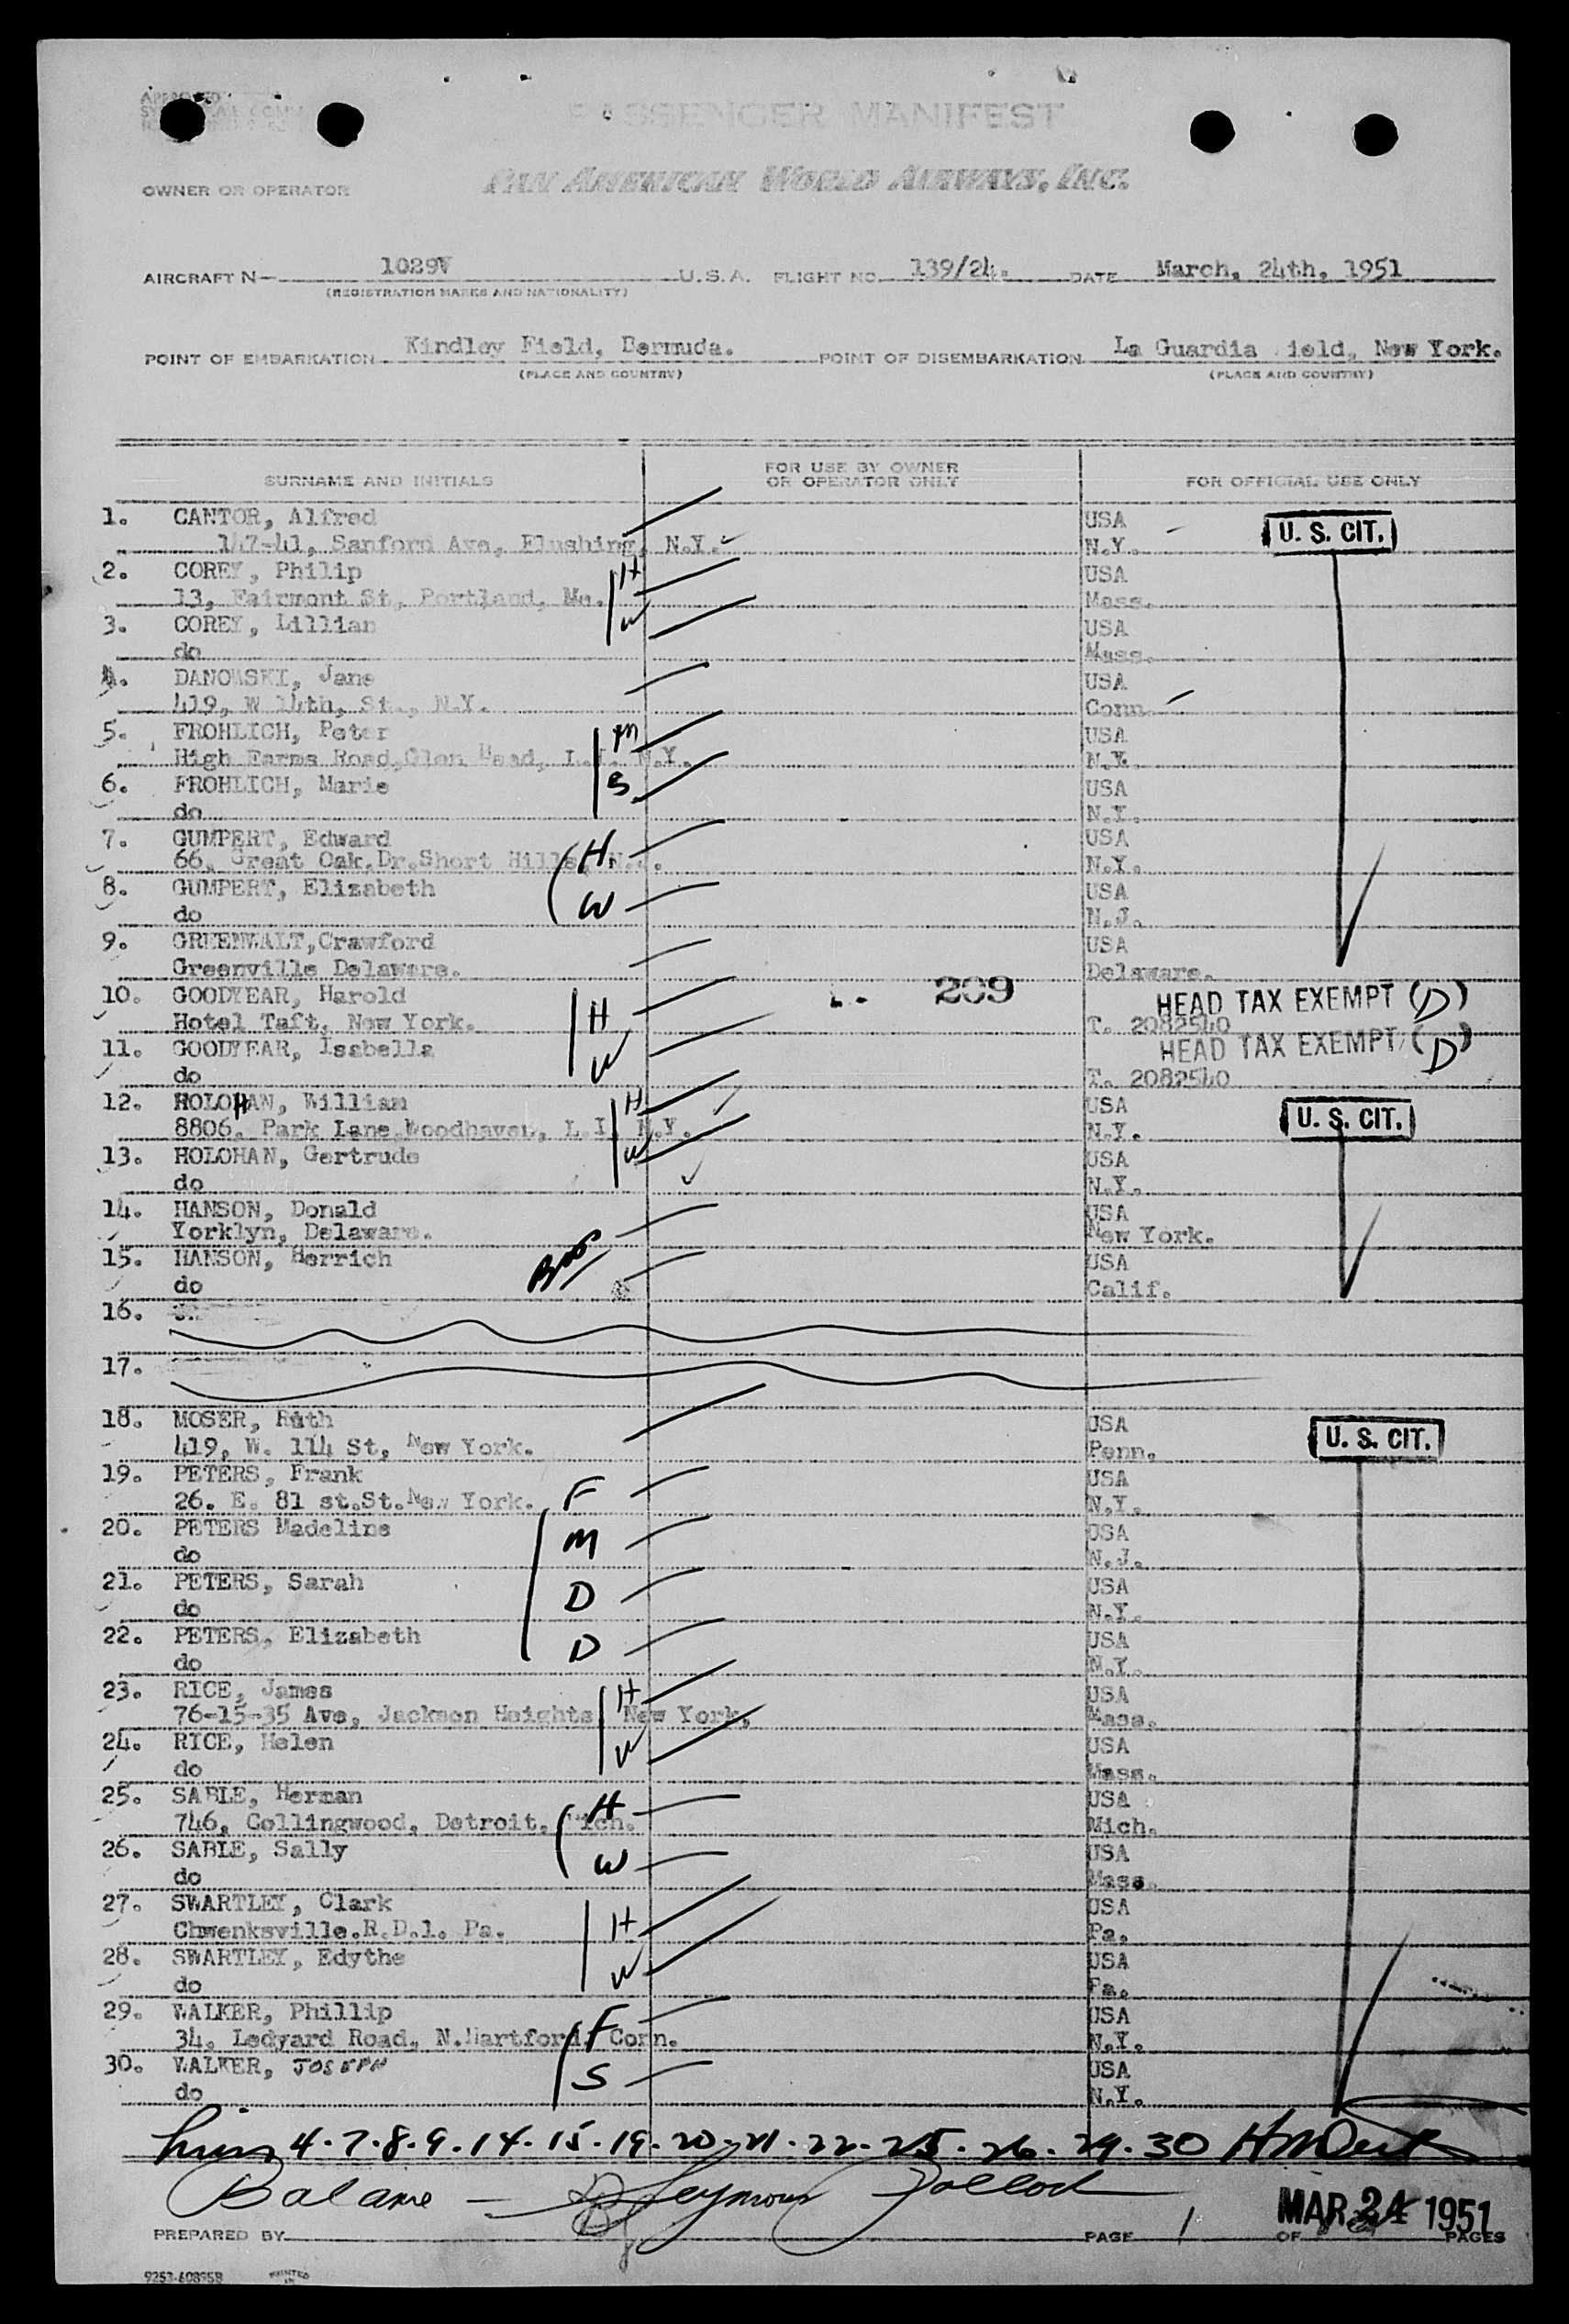 APPROVED
PASSENGER MANIFEST
OWNER OR OPERATOR PAN AMERICAN WORLD AIRWAYS, INC.
AIRCRAFT N— 1029V U.S.A. FLIGHT NO. 139/24. DATE March, 24th, 1951
(REGISTRATION MARKS AND NATIONALITY)
POINT OF EMBARKATION Kindley Field, Bermuda. POINT OF DISEMBARKATION La Guardia ield, New York.
(PLACE AND COUNTRY) (PLACE AND COUNTRY)
SURNAME AND INITIALS FOR USE BY OWNER OR OPERATOR ONLY FOR OFFICIAL USE ONLY
1. CANTOR, Alfred USA U. S. CIT.
147-41, Sanford Ave, Flushing, N.Y. N.Y.
2. COREY, Philip H USA
13, Fairmont St, Portland, Me. Mass.
3. COREY, Lillian W USA
do Mass.
4. DANOWSKI, Jane USA
419, W 14th, St., N.Y. Conn.
5. FROHLICH, Peter M USA
High Farms Road,Glen Head, L.I. N.Y. N.Y.
6. FROHLICH, Marie S USA
do N.Y.
7. GUMPERT, Edward H USA
66, Great Oak.Dr.Short Hills, N.J. N.Y.
8. GUMPERT, Elizabeth W USA
do N.J.
9. GREENWALT,Crawford USA
Greenville Delaware. Delaware.
10. GOODYEAR, Harold H 209 HEAD TAX EXEMPT (D)
Hotel Taft, New York. T. 2082540
11. GOODYEAR, Isabella W HEAD TAX EXEMPT (D)
do T. 2082540
12. HOLOHAN, William H USA U. S. CIT.
8806, Park Lane,Woodhaven, L.I. N.Y. N.Y.
13. HOLOHAN, Gertrude W USA
do N.Y.
14. HANSON, Donald USA
Yorklyn, Delaware. New York.
15. HANSON, Herrich USA
do Calif.
16.
17.
18. MOSER, Ruth USA U. S. CIT.
419, W. 114 St, New York. Penn.
19. PETERS, Frank F USA
26. E. 81 st.St.New York. N.Y.
20. PETERS Madeline M USA
do N.J.
21. PETERS, Sarah D USA
do N.Y.
22. PETERS, Elizabeth D USA
do N.Y.
23. RICE, James H USA
76-15-35 Ave, Jackson Heights New York, Mass.
24. RICE, Helen W USA
do Mass.
25. SABLE, Herman H USA
746, Collingwood, Detroit, Mich. Mich.
26. SABLE, Sally W USA
do Mass.
27. SWARTLEY, Clark H USA
Chwenksville.R.D.1. Pa. Pa.
28. SWARTLEY, Edythe W USA
do Pa.
29. WALKER, Phillip F USA
34, Ledyard Road, N.Hartford, Conn. N.Y.
30. WALKER, JOSEPH S USA
do N.Y.
4.7.8.9.14.15.19.20.21.22.25.26.29.30
Balance — Seymour
PREPARED BY PAGE 1 OF PAGES
MAR 24 1951
9253-60895B PRINTED IN